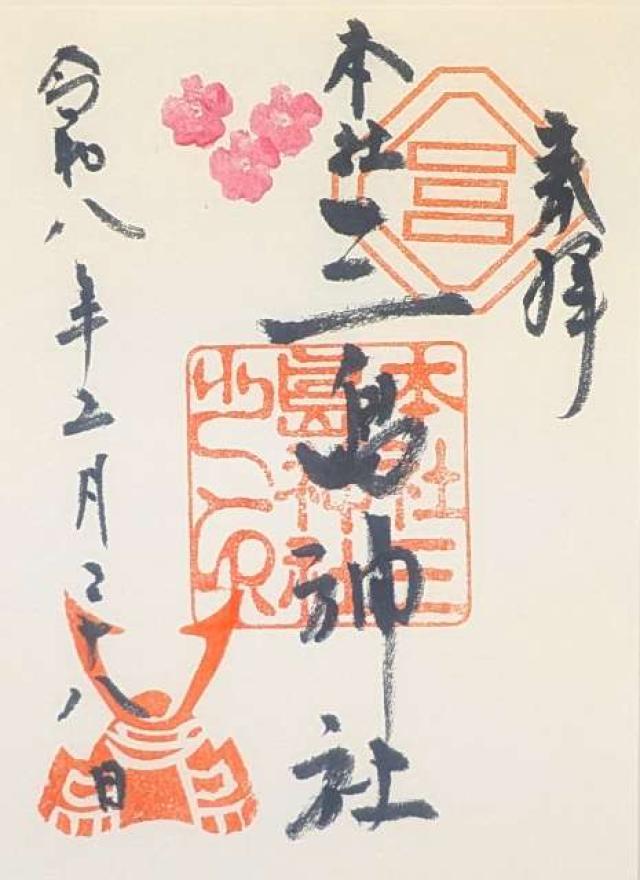 奉拝
本社三島神社
本社三
島神社
之印
令和八年二月二十八日